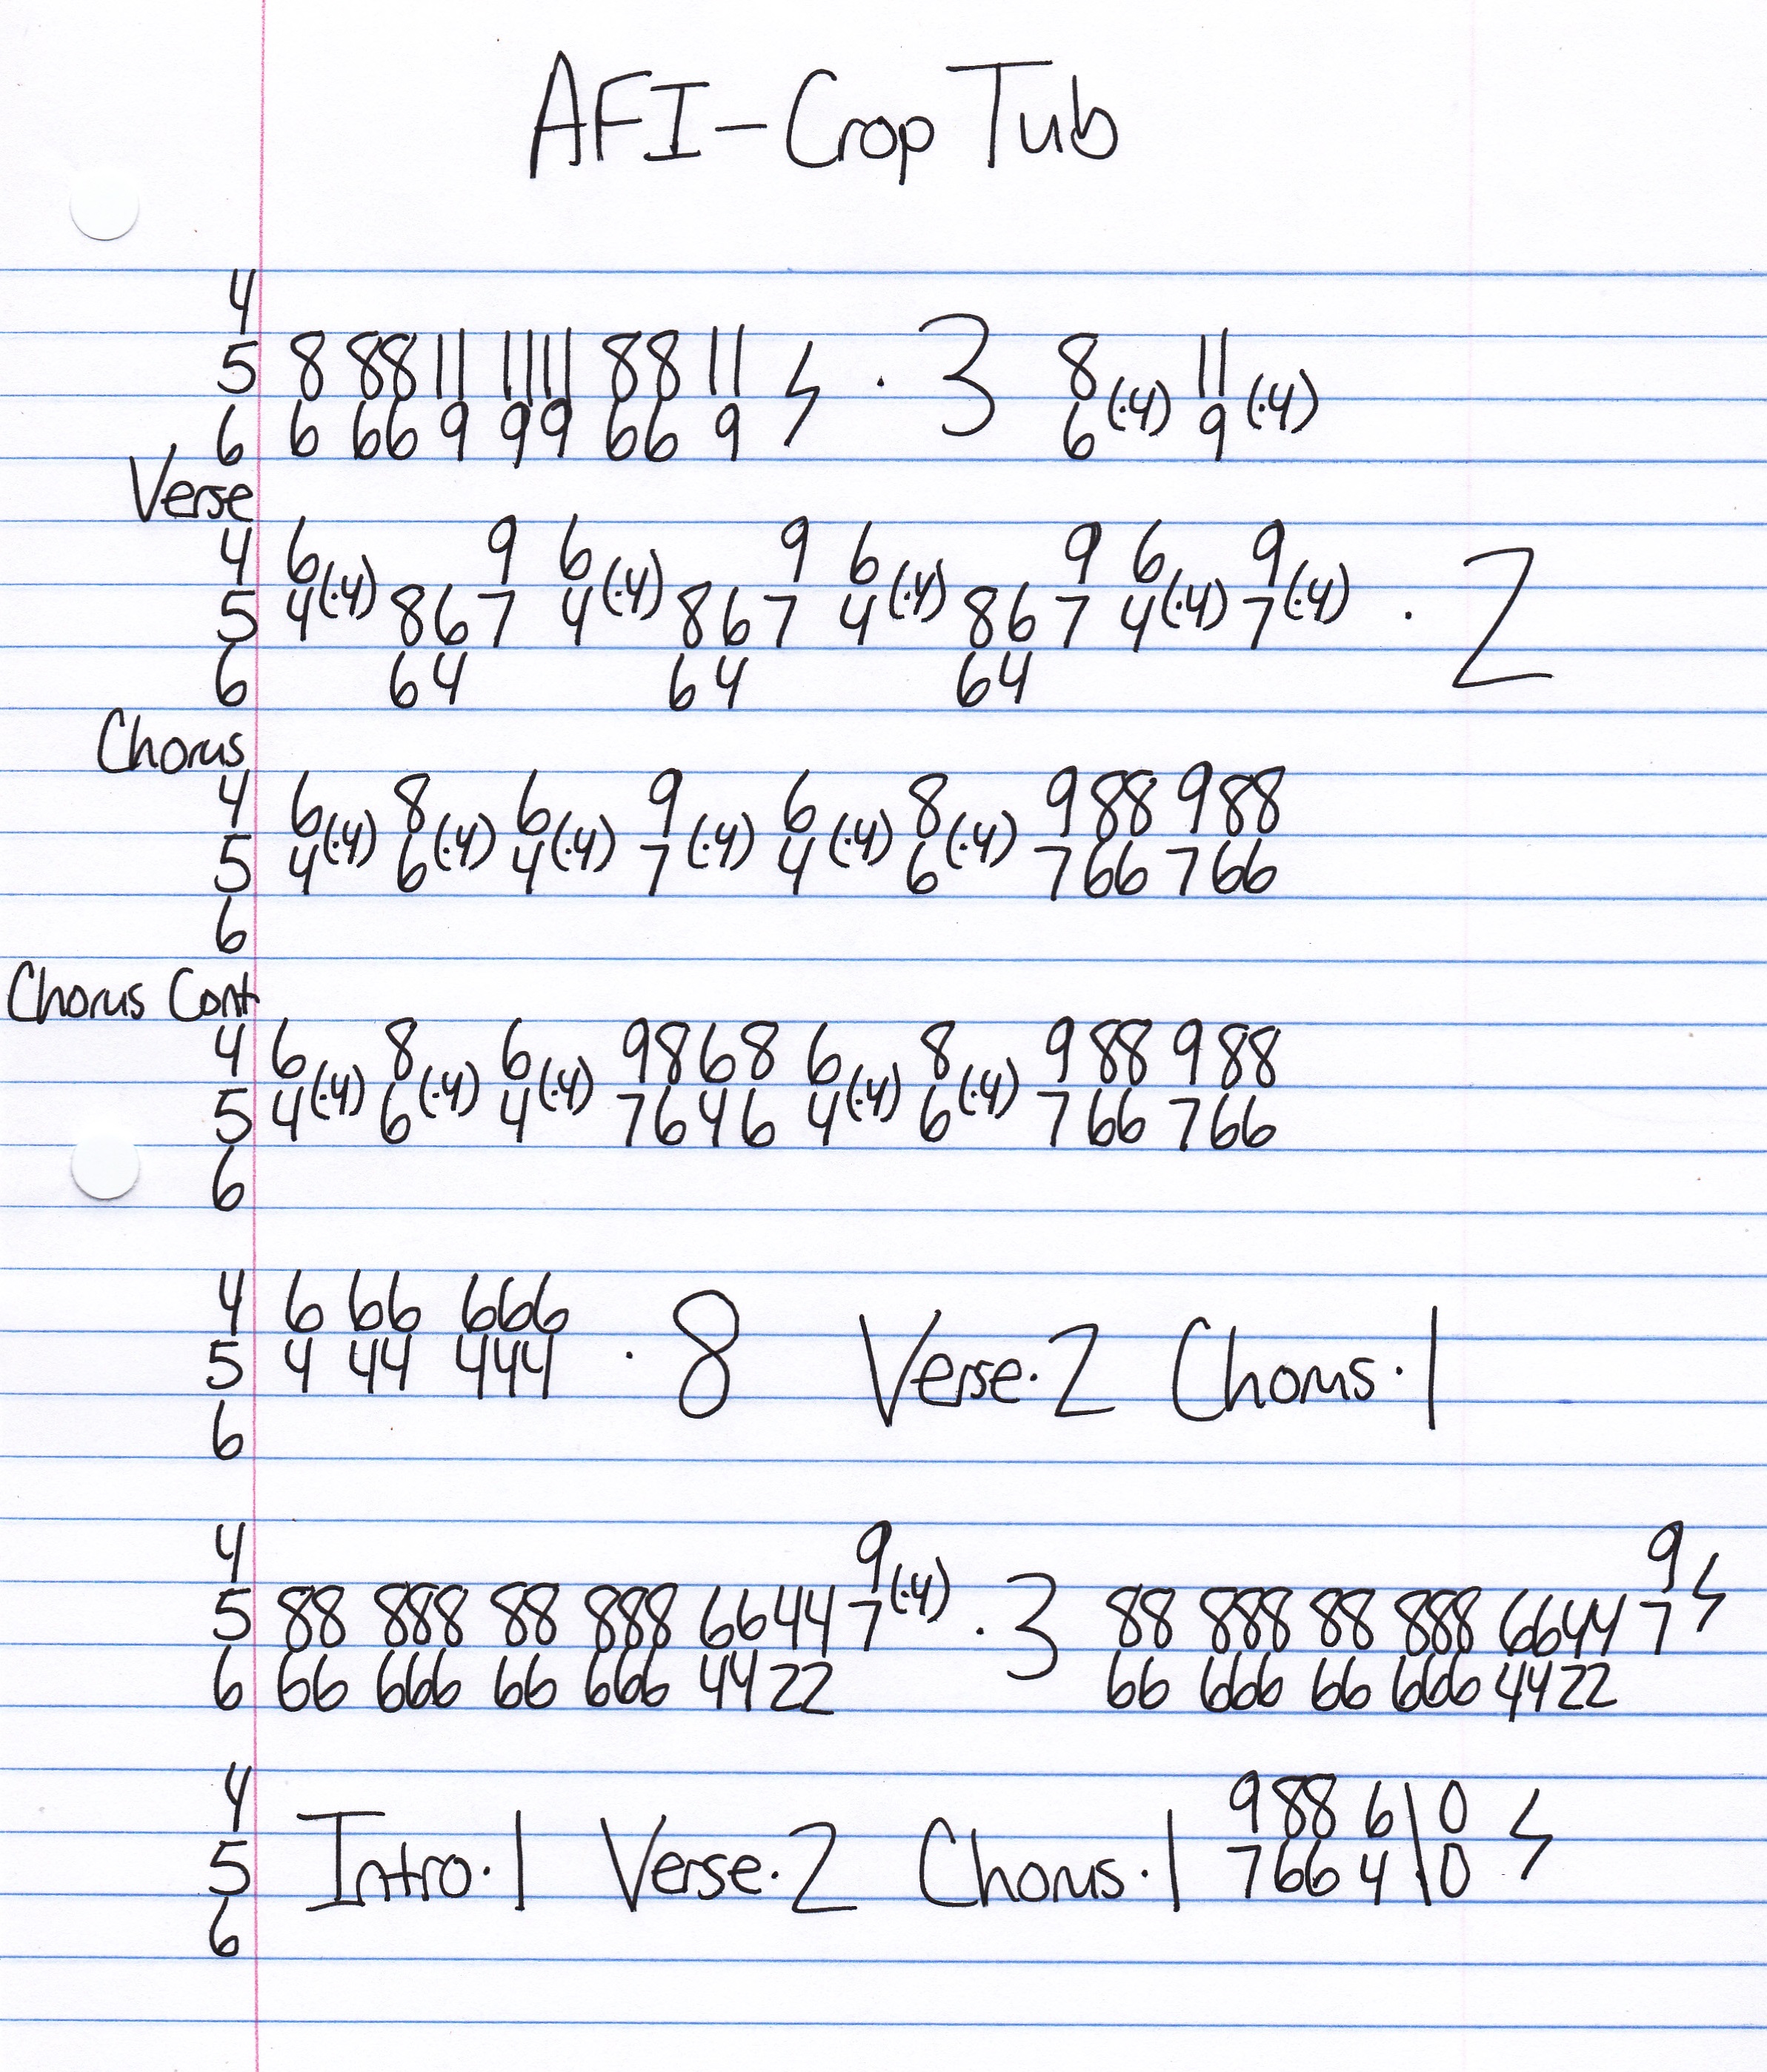 AFI-Crop Tub
4
5 8 88 11 1111 88 11 ϟ · 3 8 (·4) 11 (·4)
6 6 66 9 99 66 9 6 9
Verse
4 6 (·4) 9 6 (·4) 9 6 (·4) 9 6 (·4) 9 (·4)
5 4 8 6 7 4 8 6 7 4 8 6 7 4 7 · 2
6 6 4 6 4 6 4
Chorus
4 6 (·4) 8 (·4) 6 (·4) 9 (·4) 6 (·4) 8 (·4) 9 88 9 88
5 4 6 4 7 4 6 7 66 7 66
6
Chorus Cont
4 6 (·4) 8 (·4) 6 (·4) 9 8 6 8 6 (·4) 8 (·4) 9 88 9 88
5 4 6 4 7 6 4 6 4 6 7 66 7 66
6
4 6 66 666
5 4 44 444 · 8 Verse·2 Chorus·1
6
4 9 (·4) 9 ϟ
5 88 888 88 888 66 44 7 · 3 88 888 88 888 66 44 7
6 66 666 66 666 44 22 66 666 66 666 44 22
4 9 88 6 \ 0 ϟ
5 Intro·1 Verse·2 Chorus·1 7 66 4 \ 0
6